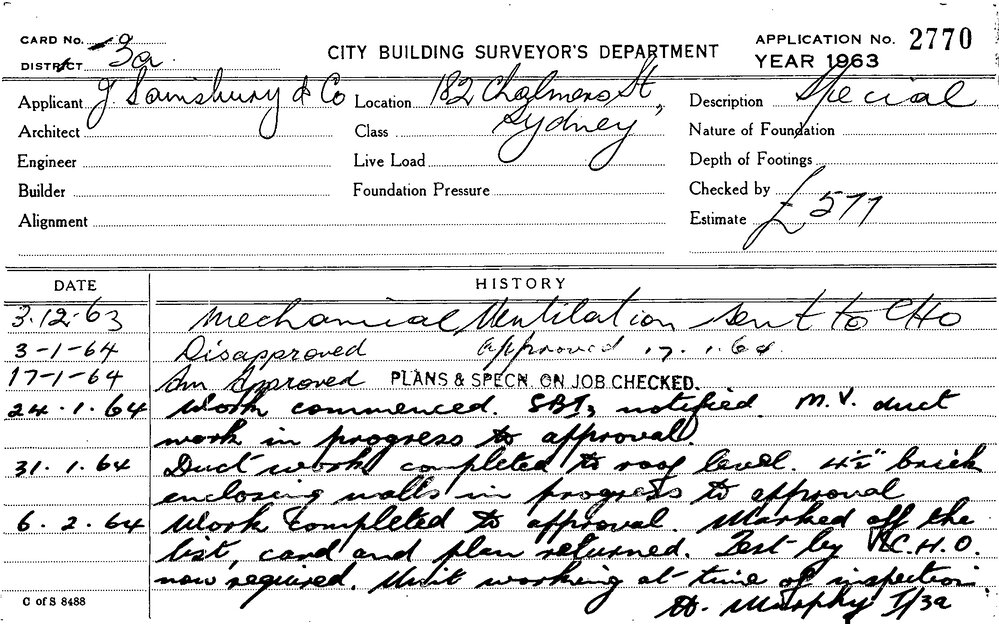 CARD No. 3a
DISTRICT
CITY BUILDING SURVEYOR'S DEPARTMENT
APPLICATION No. 2770
YEAR 1963
Applicant J. Sainsbury & Co Location 182 Chalmers St, Description Special
Architect Class Sydney Nature of Foundation
Engineer Live Load Depth of Footings
Builder Foundation Pressure Checked by
Alignment Estimate £577
DATE HISTORY
3.12.63 Mechanical Ventilation sent to CHO
3-1-64 Disapproved approved 17.1.64.
17-1-64 Approved PLANS & SPECN. ON JOB CHECKED.
24.1.64 Work commenced. notified. M.V. duct
work in progress to approval.
31.1.64 Duct work completed to roof level. 4½" brick
enclosing walls in progress to approval
6.2.64 Work completed to approval. Marked off the
list, card and plan returned. Test by C.H.O.
now required. Unit working at time of inspection
Murphy I/3a
C of S 8488